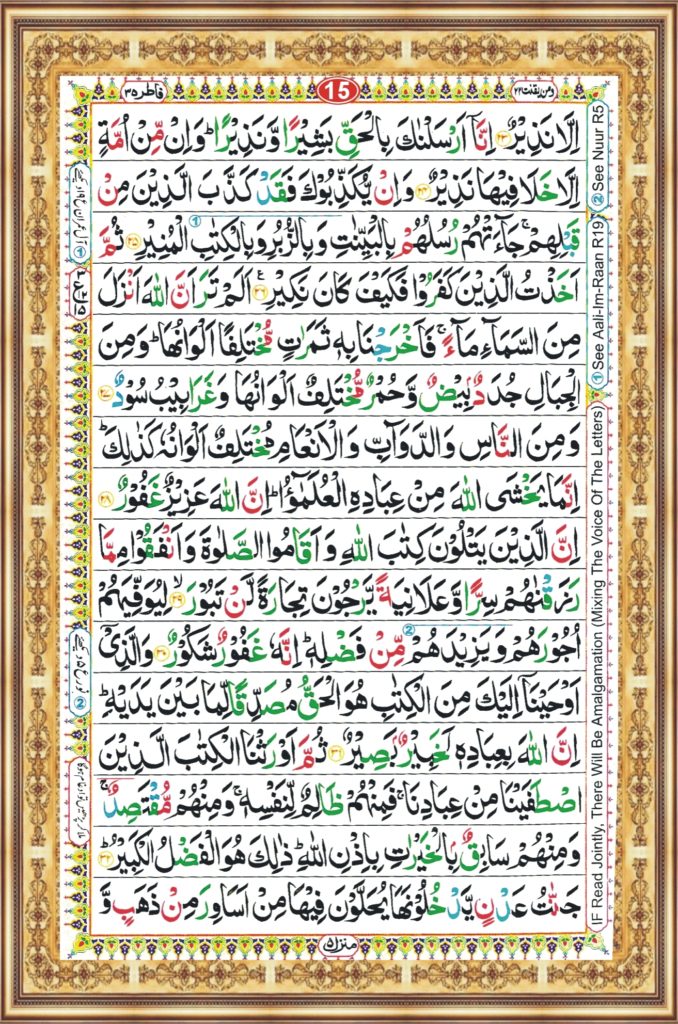 ومن يقنت ٢٢
15
فاطر ٣٥
اِلَّا نَذِيْرٌ ﴿۲۳﴾ اِنَّاۤ اَرْسَلْنٰكَ بِالْحَقِّ بَشِيْرًا وَّنَذِيْرًا ؕ وَاِنْ مِّنْ اُمَّةٍ
اِلَّا خَلَا فِيْهَا نَذِيْرٌ ﴿۲۴﴾ وَاِنْ يُّكَذِّبُوْكَ فَقَدْ كَذَّبَ الَّذِيْنَ مِنْ
قَبْلِهِمْ ۚ جَآءَتْهُمْ رُسُلُهُمْ بِالْبَيِّنٰتِ وَبِالزُّبُرِ وَبِالْكِتٰبِ الْمُنِيْرِ ﴿۲۵﴾ ثُمَّ
اَخَذْتُ الَّذِيْنَ كَفَرُوْا فَكَيْفَ كَانَ نَكِيْرِ ﴿۲۶﴾ اَلَمْ تَرَ اَنَّ اللّٰهَ اَنْزَلَ
مِنَ السَّمَآءِ مَآءً ۚ فَاَخْرَجْنَا بِهٖ ثَمَرٰتٍ مُّخْتَلِفًا اَلْوَانُهَا ؕ وَمِنَ
الْجِبَالِ جُدَدٌۢ بِيْضٌ وَّحُمْرٌ مُّخْتَلِفٌ اَلْوَانُهَا وَغَرَابِيْبُ سُوْدٌ ﴿۲۷﴾
وَمِنَ النَّاسِ وَالدَّوَآبِّ وَالْاَنْعَامِ مُخْتَلِفٌ اَلْوَانُهٗ كَذٰلِكَ ؕ
اِنَّمَا يَخْشَى اللّٰهَ مِنْ عِبَادِهِ الْعُلَمٰٓؤُا ؕ اِنَّ اللّٰهَ عَزِيْزٌ غَفُوْرٌ ﴿۲۸﴾
اِنَّ الَّذِيْنَ يَتْلُوْنَ كِتٰبَ اللّٰهِ وَاَقَامُوا الصَّلٰوةَ وَاَنْفَقُوْا مِمَّا
رَزَقْنٰهُمْ سِرًّا وَّعَلَانِيَةً يَّرْجُوْنَ تِجَارَةً لَّنْ تَبُوْرَ ۙ ﴿۲۹﴾ لِيُوَفِّيَهُمْ
اُجُوْرَهُمْ وَيَزِيْدَهُمْ مِّنْ فَضْلِهٖ ؕ اِنَّهٗ غَفُوْرٌ شَكُوْرٌ ﴿۳۰﴾ وَالَّذِيْۤ
اَوْحَيْنَاۤ اِلَيْكَ مِنَ الْكِتٰبِ هُوَ الْحَقُّ مُصَدِّقًا لِّمَا بَيْنَ يَدَيْهِ ؕ
اِنَّ اللّٰهَ بِعِبَادِهٖ لَخَبِيْرٌۢ بَصِيْرٌ ﴿۳۱﴾ ثُمَّ اَوْرَثْنَا الْكِتٰبَ الَّذِيْنَ
اصْطَفَيْنَا مِنْ عِبَادِنَا ۚ فَمِنْهُمْ ظَالِمٌ لِّنَفْسِهٖ ۚ وَمِنْهُمْ مُّقْتَصِدٌ ۚ
وَمِنْهُمْ سَابِقٌۢ بِالْخَيْرٰتِ بِاِذْنِ اللّٰهِ ؕ ذٰلِكَ هُوَ الْفَضْلُ الْكَبِيْرُ ؕ ﴿۳۲﴾
جَنّٰتُ عَدْنٍ يَّدْخُلُوْنَهَا يُحَلَّوْنَ فِيْهَا مِنْ اَسَاوِرَ مِنْ ذَهَبٍ وَّ
منزل ٥
② See Nuur R5
① See Aali-Im-Raan R19
IF Read Jointly, There Will Be Amalgamation (Mixing The Voice Of The Letters)